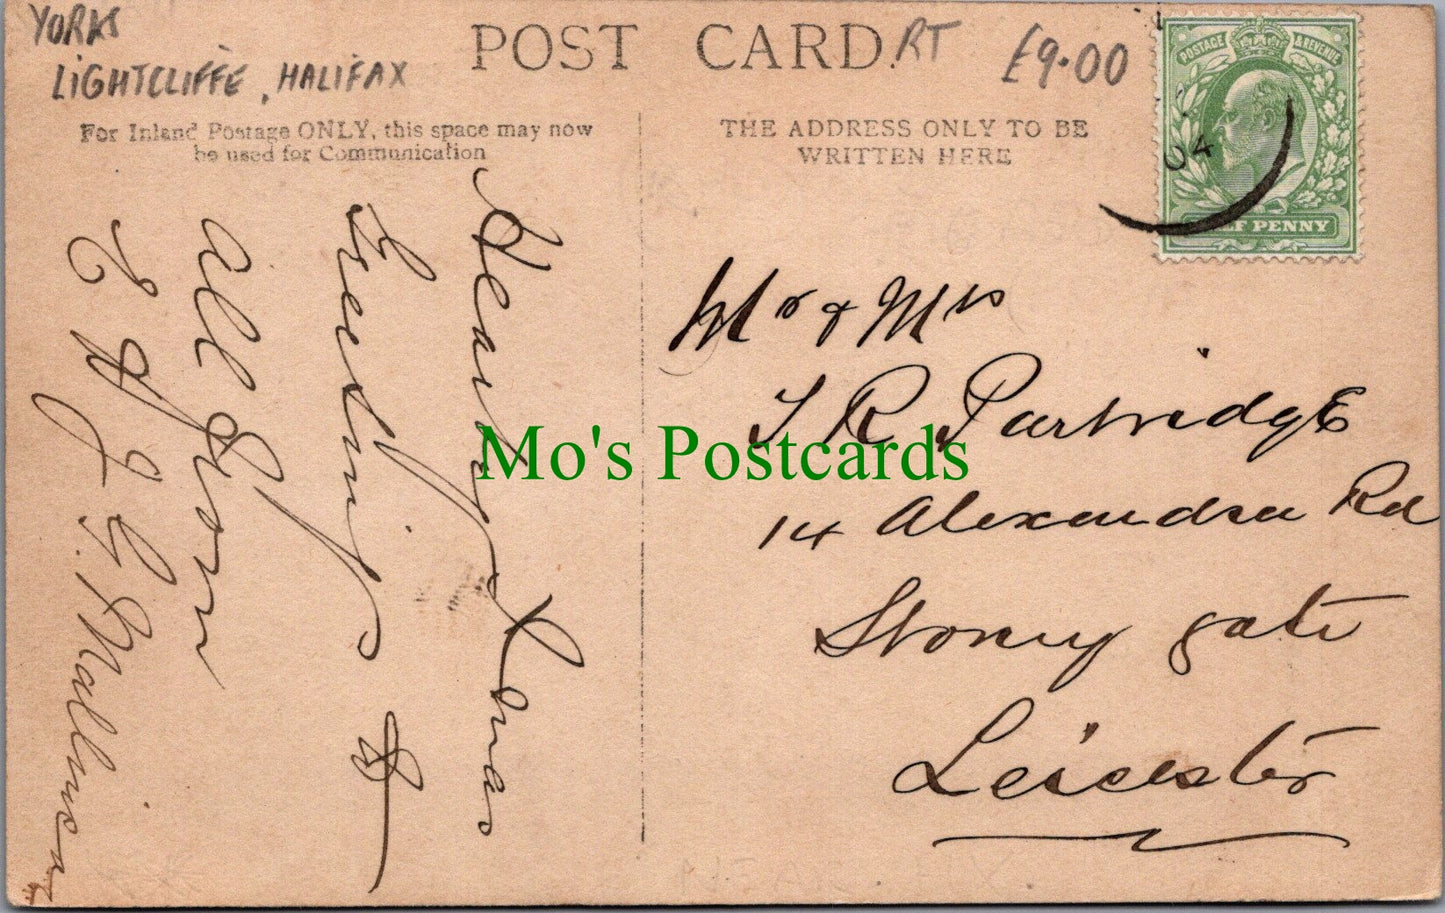 YORKS
LIGHTCLIFFE, HALIFAX
POST CARD.
RT
£9.00
For Inland Postage ONLY, this space may now
be used for Communication
THE ADDRESS ONLY TO BE
WRITTEN HERE
POSTAGE & REVENUE
HALF PENNY
04
Hearty Xmas
Greetings to
all from
J. Mallinson
Mr & Mrs
J R Partridge
14 Alexandra Rd
Stoney gate
Leicester
Mo's Postcards